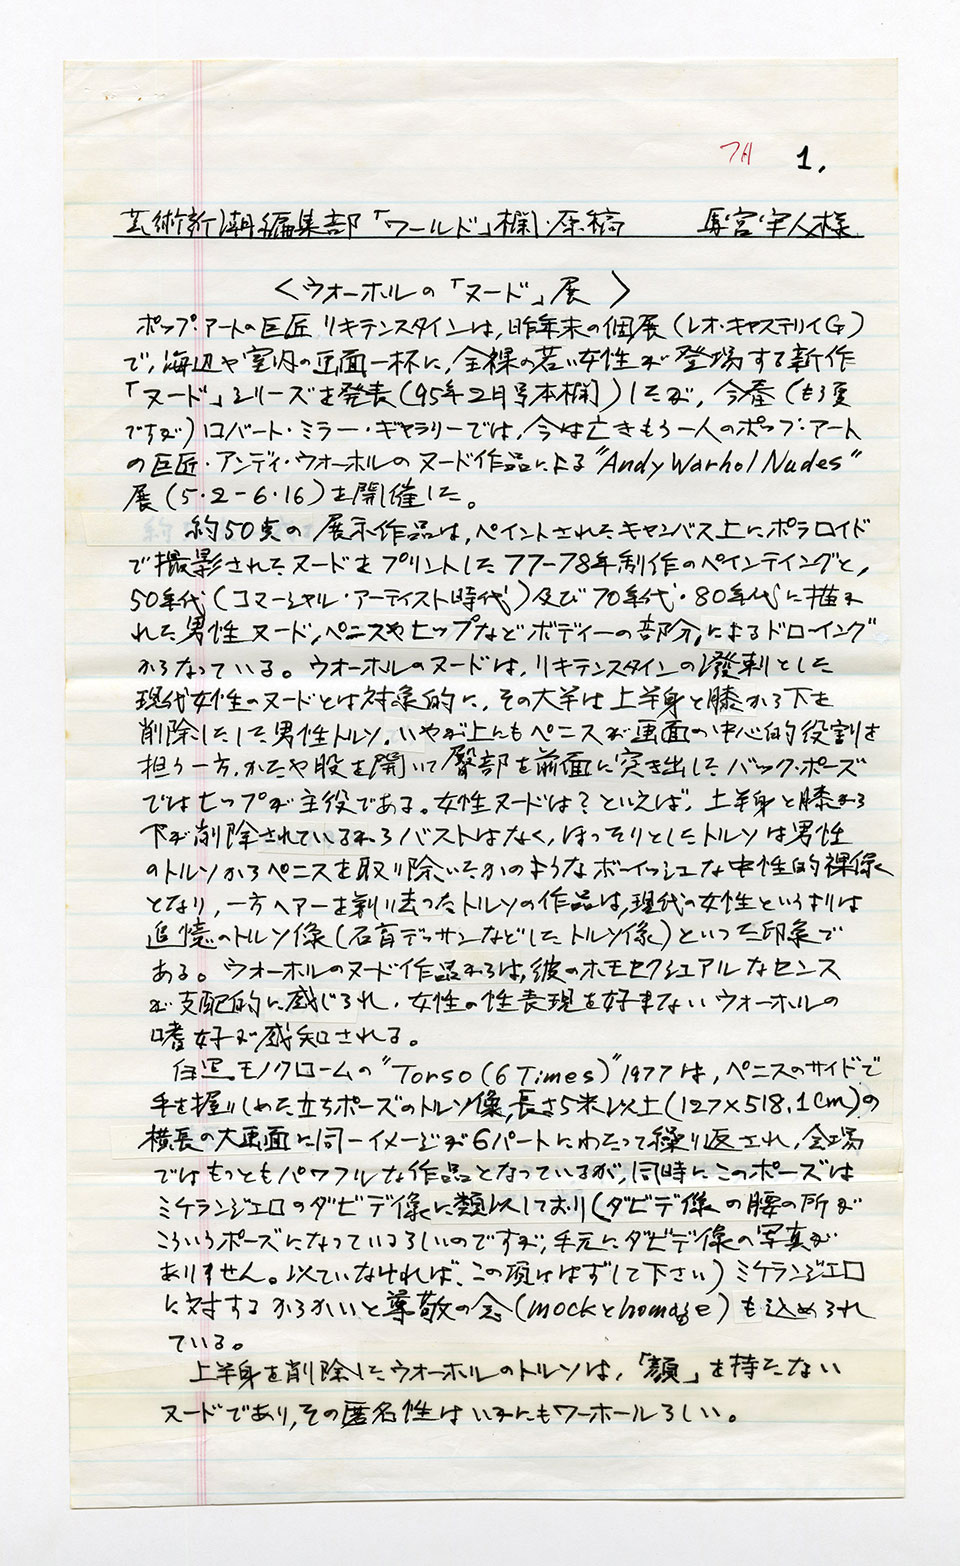 7月 1.
芸術新潮編集部「ワールド」欄・原稿 馬宮守人様
〈ウォーホルの「ヌード」展〉
ポップ・アートの巨匠リキテンスタインは、昨年末の個展(レオ・キャステリイG)
で、海辺や室内の画面一杯に、全裸の若い女性が登場する新作
「ヌード」シリーズを発表(95年2月号本欄)したが、今春(もう夏
ですが)ロバート・ミラー・ギャラリーでは、今は亡きもう一人のポップ・アート
の巨匠・アンディ・ウォーホルのヌード作品による"Andy Warhol Nudes"
展(5・2-6・16)を開催した。
約50点の展示作品は、ペイントされたキャンバス上に、ポラロイド
で撮影されたヌードをプリントした77-78年制作のペインテイングと、
50年代(コマーシャル・アーティスト時代)及び70年代・80年代に描か
れた男性ヌード、ペニスやヒップなどボディーの部分、によるドローイング
からなっている。ウォーホルのヌードは、リキテンスタインの溌剌とした
現代女性のヌードとは対象的に、その大半は上半身と膝から下を
削除したした男性トルソ。いやが上にもペニスが画面の中心的役割を
担う一方、かたや股を開いて臀部を前面に突き出したバック・ポーズ
ではヒップが主役である。女性ヌードは?といえば、上半身と膝から
下が削除されているからバストはなく、ほっそりとしたトルソは男性
のトルソからペニスを取り除いたかのようなボーイッシュな中性的裸像
となり、一方ヘアーを剃り去ったトルソの作品は、現代の女性というよりは
追憶のトルソ像(石膏デッサンなどしたトルソ像)といった印象で
ある。ウォーホルのヌード作品からは、彼のホモセクシュアルなセンス
が支配的に感じられ、女性の性表現を好まないウォーホルの
嗜好が感知される。
モノクロームの"Torso (6 Times)"1977は、ペニスのサイドで
手を握りしめた立ちポーズのトルソ像、長さ5米以上(127×518.1cm)の
横長の大画面に同一イメージが6パートにわたって繰り返され、会場
ではもっともパワフルな作品となっているが、同時にこのポーズは
ミケランジェロのダビデ像に類似しており(ダビデ像の腰の所が
こういうポーズになっているらしいのですが、手元にダビデ像の写真が
ありません。似ていなければ、この項ははずして下さい)ミケランジェロ
に対するからかいと尊敬の念(mockとhomage)も込められ
ている。
上半身を削除したウォーホルのトルソは、「顔」を持たない
ヌードであり、その匿名性はいかにもワーホールらしい。